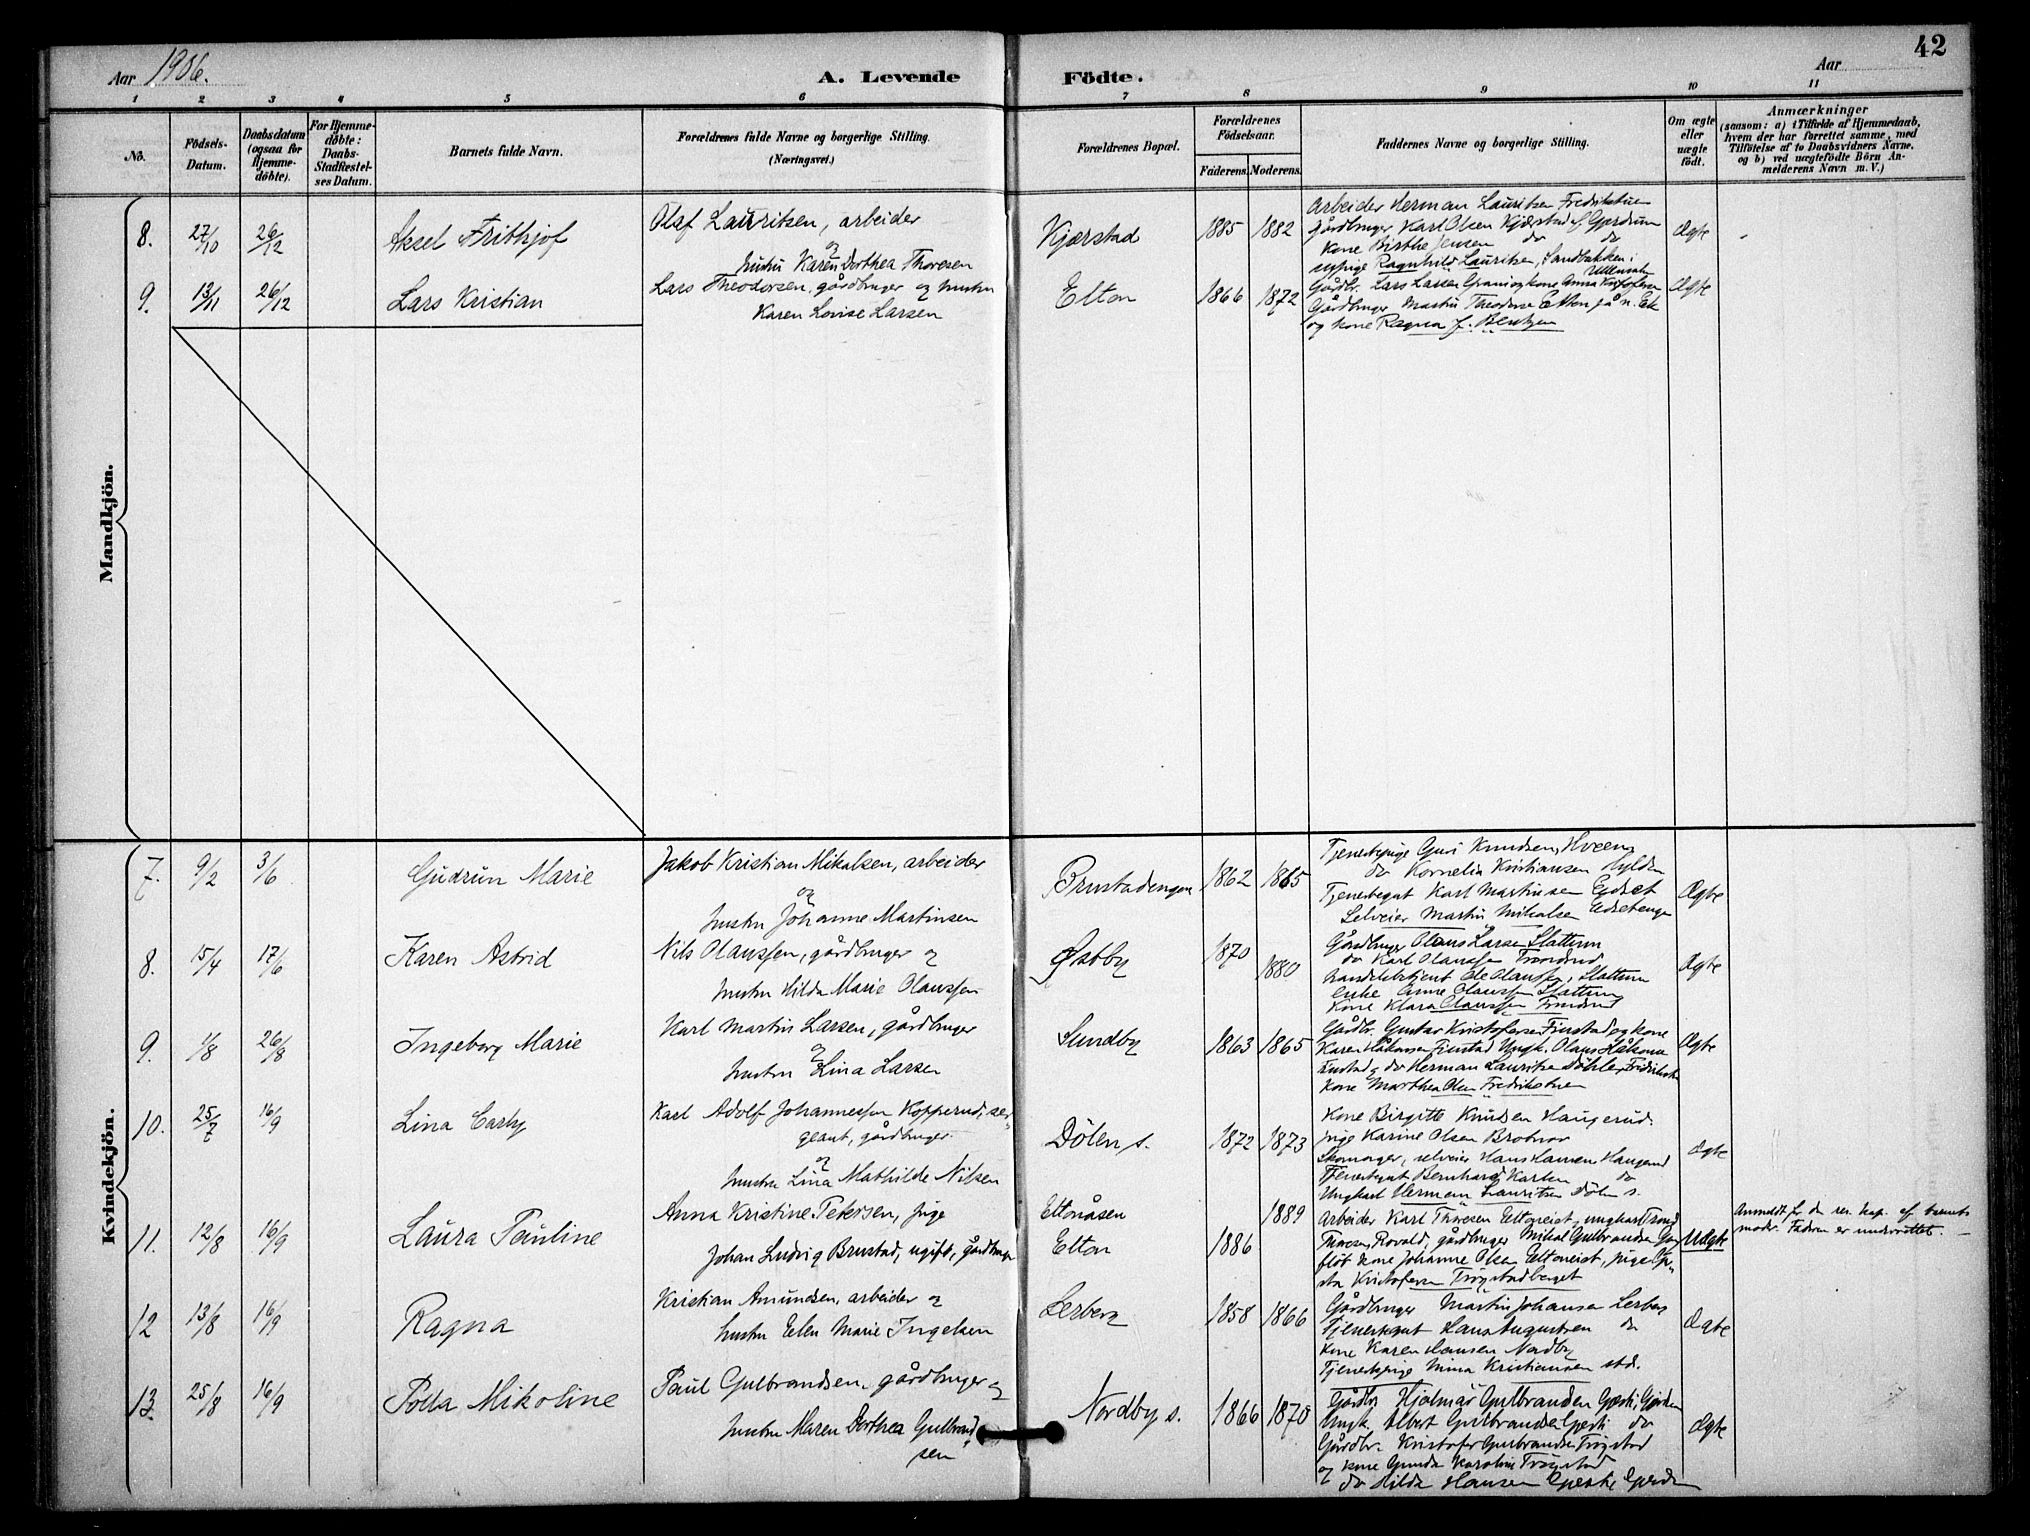 42
Aar 1906.
A. Levende Födte.
Aar
1 2 3 4 5 6 7 8 9 10 11
No.
Födsels-Datum.
Daabsdatum (ogsaa for Hjemme-döbte).
For Hjemme-döbte: Daabs-Stadfæstel-ses Datum.
Barnets fulde Navn.
Forældrenes fulde Navne og borgerlige Stilling.
(Næringsvei.)
Forældrenes Bopæl.
Forældrenes Födselsaar.
Faderens. Moderens.
Faddernes Navne og borgerlige Stilling.
Om ægte eller uægte födt.
Anmærkninger
(saasom: a) i Tilfælde af Hjemmedaab,
hvem der har forrettet samme, med
Tilföielse af to Daabsvidners Navne.
og b) ved uægtefödte Börn An-
melderens Navn m. V.)
Mandkjön.
8. 27/10 26/12 Aksel Frithjof
Olaf Lauritsen, arbeider
og
hustru Karen Dorthea Thoresen
Kjærstad 1885 1882
Arbeider Herman Lauritsen Fredrikstuen
Gårdbruger Karl Olsen Kjærstad af Gjerdrum
Kone Birthe Jensen do do
Ragnhild Lauritsen, Sandbakken i
Ullensaker
Ægte
9. 13/11 26/12 Lars Kristian
Lars Theodorsen, gårdbruger og hustru
Karen Lovise Larsen
Elton 1866 1872
Gårdbr. Lars Larsen og kone Anna Kristofersen
Gårdbruger Martin Theodorsen
og kone Ragna f. Berntzen
Ægte
Kvindekjön.
7. 9/2 3/6 Gudrun Marie
Jakob Kristian Mikalsen, arbeider
og
hustru Johanne Martinsen
Brustadengen 1862 1865
Tjenestepige Guri Knudsen, Hveen
do Kornelia Kristiansen
Tjenestegut Karl Martinsen
Selveier Martin Mikalsen
Ægte
8. 15/4 17/6 Karen Astrid
Nils Olaussen, gårdbruger og
hustru Hilda Marie Olaussen
Østby 1870 1880
Gårdbruger Olaus Larsen Slattum
do Karl Olaussen
Handelsbetjent Ole Olaussen, Slattum
enke Anne Olaussen Slattum
Kone Klara Olaussen
Ægte
9. 1/8 26/8 Ingeborg Marie
Karl Martin Larsen, gårdbruger
og
hustru Lina Larsen
Sundby 1863 1865
Gårdbr. Gustav Kristofersen Finstad og kone
Karen Håkonsen Finstad Ungk. Olaus Håkonsen
Finstad og do Herman Lauritsen
Kone Marthea Olsen Fredrikstuen
Ægte
10. 25/7 16/9 Lina Casby
Karl Adolf Johannessen Kopperud, ser-
geant, gårdbruger
og
hustru Lina Mathilde Nilsen
Dölen s. 1872 1873
Kone Birgitte Knudsen Haugerud.
Pige Karine Olsen Brotnov
Skomager, selveier Hans Hansen Haugerud
Tjenestegut Bernhard Karlsen do
Ungkarl Herman Lauritsen Dölen s.
Ægte
11. 12/8 16/9 Laura Pauline
Anna Kristine Petersen, Pige
Johan Ludvig Brustad, ugift, gårdbruger
Eltonåsen 1889
Elton 1886
Arbeider Karl Thoresen Eltoneiet, ungkarl
Thoresen Rovald, gårdbruger Mikal Gulbrandsen
kone Johanne Olsen Eltoneiet, pige
Kristofersen Trögstadberget
Uægte
Anmeldt f. d. res. kap. af barnets
moder. Fadren er underrettet.
12 13/8 16/9 Ragna
Kristian Amundsen, arbeider og
hustru Elen Marie Ingelsen
Lerberg 1858 1866
Gårdbruger Martin Johansen Lerberg
Tjenestegut Hans Augustsen do
Kone Karen Hansen Nordby
Tjenestepige Mina Kristiansen stds.
Ægte
13. 25/8 16/9 Mikoline
Paul Gulbrandsen, gårdbruger og
hustru Maren Dorthea Gulbrand
sen
Nordby s. 1866 1870
Gårdbr. Hjalmar Gulbrandsen
Ungk. Albert Gulbrandsen do
Gårdbr. Kristofer Gulbrandsen Trögstad
og kone Gunda Karoline Trögstad
do Hilda Hansen
Ægte